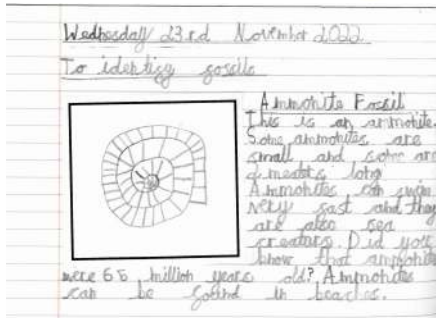 Wednesday 23rd November 2022
To identify fossils
Ammonite Fossil
This is an ammonite.
Some ammonites are
small and some are
2 meatrs long
Ammonites can swim
very fast and they
are also sea
creaturs. Did you
know that ammonite
were 65 million years old? Ammonites
can be found in beaches.